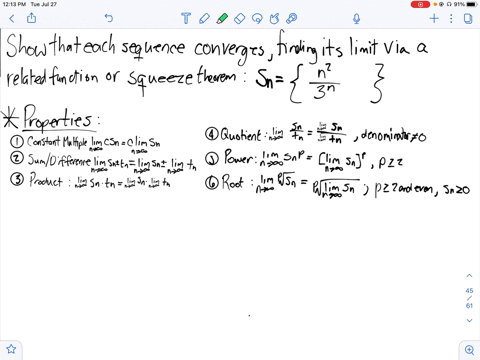 12:13 PM Tue Jul 27
91%
Show that each sequence converges, finding its limit via a
related function or squeeze theorem: Sn = { n² / 3ⁿ }
* Properties:
① Constant Multiple lim n→∞ cSn = c lim n→∞ Sn
② Sum/Difference lim n→∞ Sn ± tn = lim n→∞ Sn ± lim n→∞ tn
③ Product: lim n→∞ Sn · tn = lim n→∞ Sn · lim n→∞ tn
④ Quotient: lim n→∞ Sn / tn = lim n→∞ Sn / lim n→∞ tn, denominator ≠ 0
⑤ Power: lim n→∞ Snᵖ = [lim n→∞ Sn]ᵖ, p ≥ 2
⑥ Root: lim n→∞ ᵖ√Sn = ᵖ√lim n→∞ Sn; p ≥ 2 and even, Sn ≥ 0
45
/
61